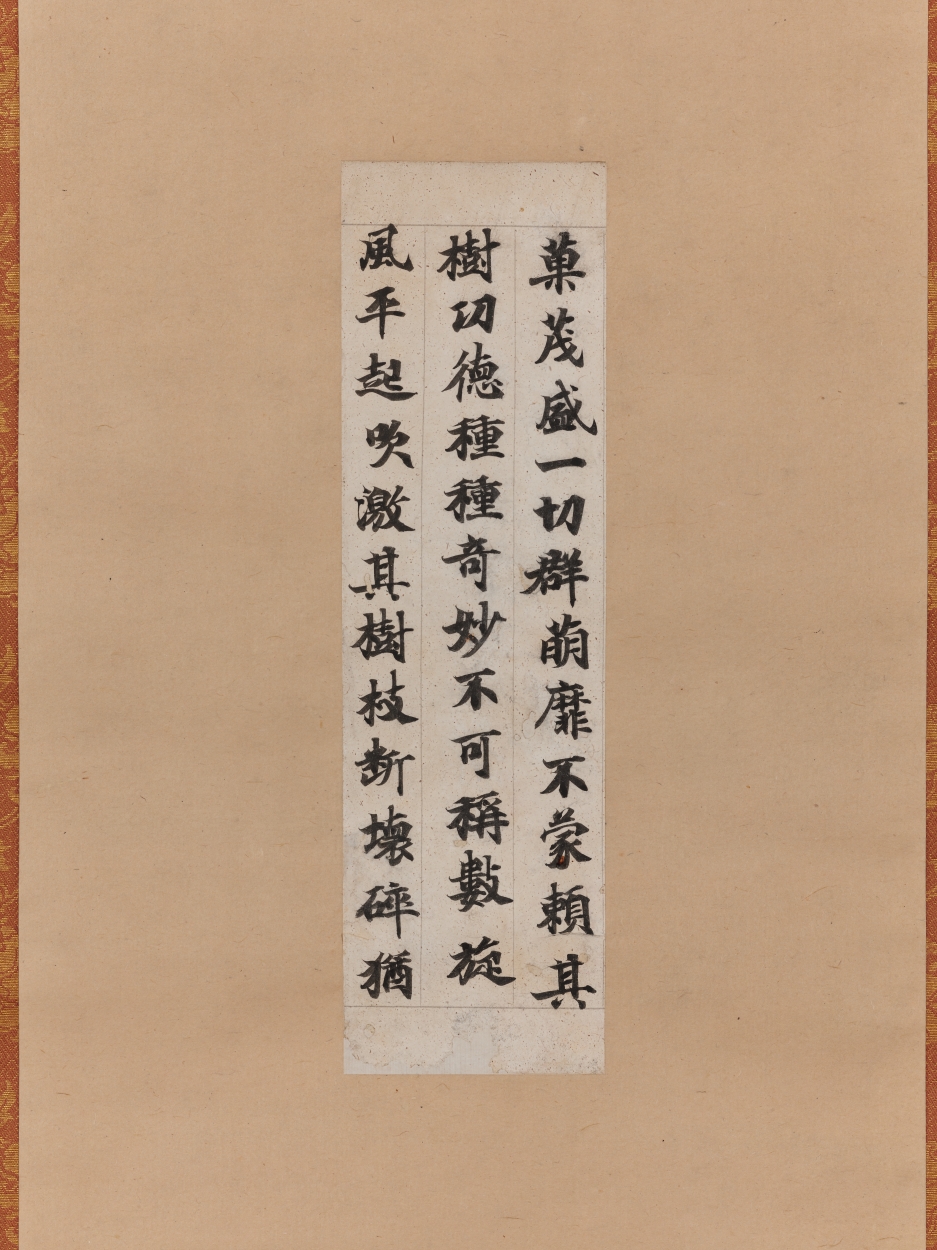 菓茂盛一切群萠靡不蒙頼其
樹功徳種種奇妙不可稱數旋
風平起吹激其樹枝断壊碎猶